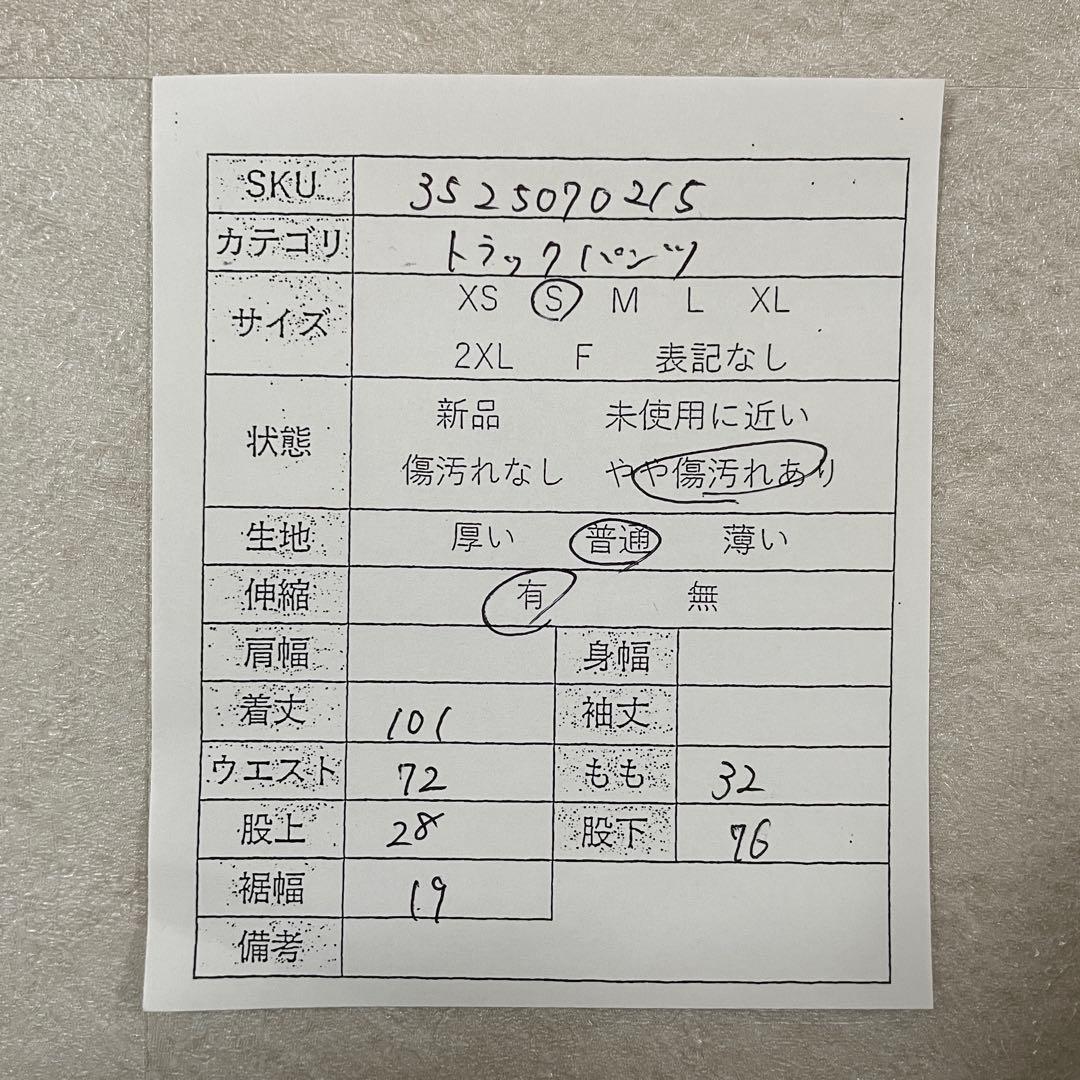 SKU 3525070215
カテゴリ トラックパンツ
サイズ XS S M L XL
2XL F 表記なし
状態 新品 未使用に近い
傷汚れなし やや傷汚れあり
生地 厚い 普通 薄い
伸縮 有 無
肩幅 身幅
着丈 101 袖丈
ウエスト 72 もも 32
股上 28 股下 76
裾幅 19
備考